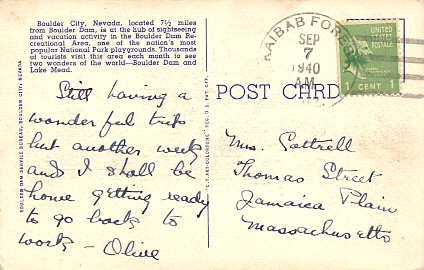 Boulder City, Nevada, located 7½ miles
from Boulder Dam, is at the hub of sightseeing
and vacation activity in the Boulder Dam Re-
creational Area, one of the nation's most
popular National Park playgrounds. Thousands
of tourists visit this area each month to see
two wonders of the world—Boulder Dam and
Lake Mead.
Still having a
wonderful trip
but another week
and I shall be
home getting ready
to go back to
work – Olive
BOULDER DAM SERVICE BUREAU, BOULDER CITY, NEVADA
"C.T. ART-COLORTONE" REG. U.S. PAT. OFF.
KAIBAB FOREST
SEP
7
1940
AM
UNITED
STATES
POSTAGE
1 CENT 1
POST CARD
Mrs. Cottrell
Thomas Street
Jamaica Plain
Massachusetts